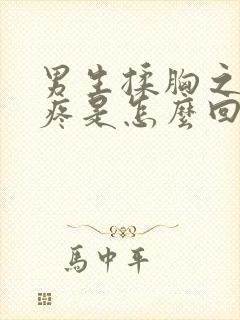 男生揉胸之
疼是怎麼回
馬中平